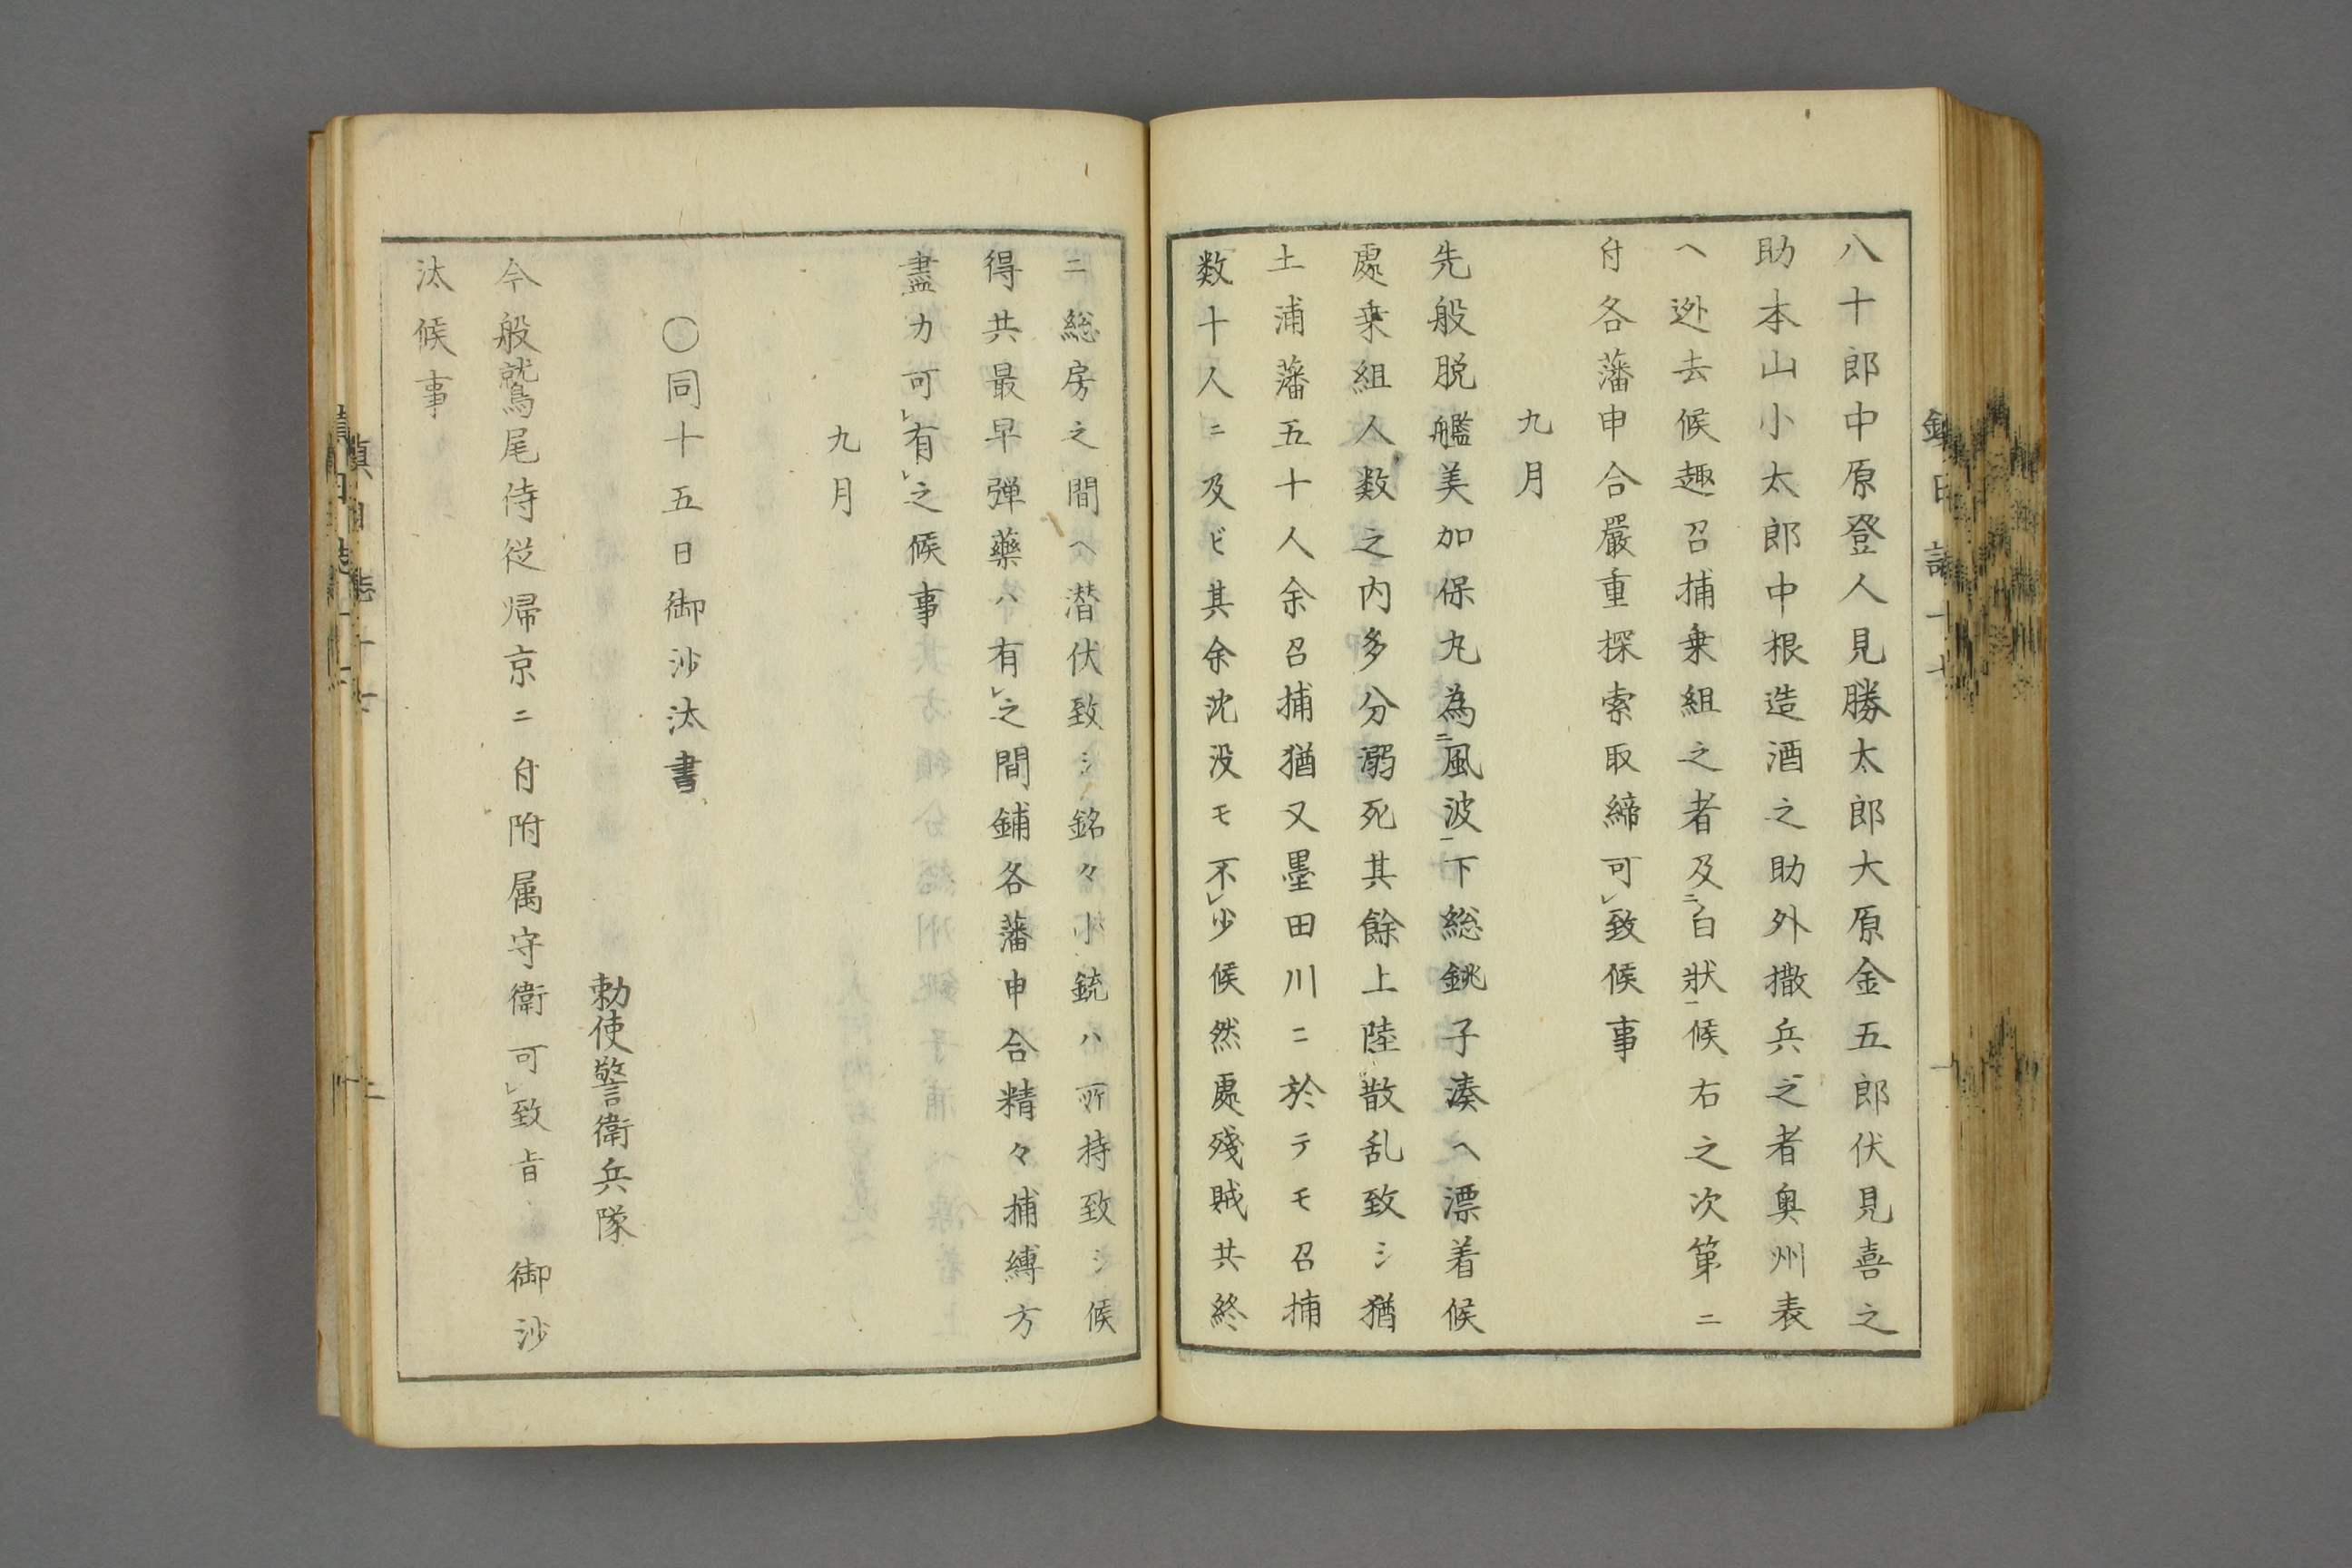 八十郎中原登人見勝太郎大原金五郎伏見喜之
助本山小太郎中根造酒之助外撒兵之者奥州表
ヘ迯去候趣召捕乗組之者及ニ白狀一候右之次第ニ
付各藩申合嚴重探索取締可レ致候事
九月
先般脱艦美加保丸為ニ風波一下総銚子湊ヘ漂着候
處乗組人数之内多分溺死其餘上陸散乱致シ猶
土浦藩五十人余召捕猶又墨田川ニ於テモ召捕
数十人ニ及ビ其余沈没モ不レ少候然處殘賊共終
ニ総房之間ヘ潜伏致シ銘々小銃ハ所持致シ候
得共最早弾藥ハ有レ之間鋪各藩申合精々捕縛方
盡力可レ有レ之候事
九月
〇同十五日御沙汰書
勅使警衛兵隊
今般鷲尾侍従帰京ニ付附属守衛可レ致旨 御沙
汰候事